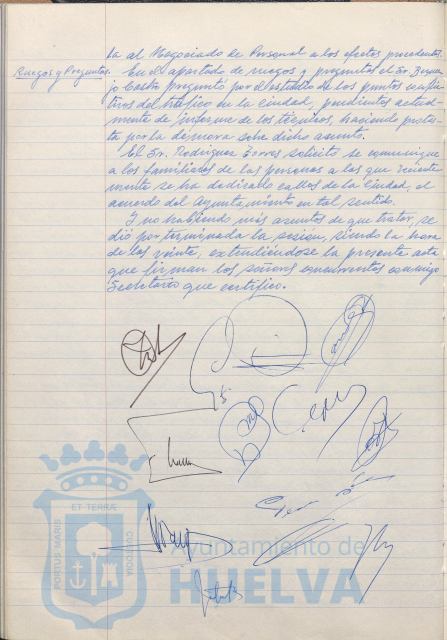 ta al Negociado de Personal a los efectos procedentes.
Ruegos y Preguntas. En el apartado de ruegos y preguntas el Sr. Berme
jo Castro preguntó por el estudio de los puntos conflic
tivos del tráfico en la ciudad, pendientes actual
mente de informe de los técnicos, haciendo protes
ta por la demora sobre dicho asunto.
El Sr. Rodríguez Torres solicitó se comunique
a los familiares de las personas a las que reciente
mente se ha dedicado calles de la Ciudad, el
acuerdo del ayuntamiento en tal sentido.
Y no habiendo más asuntos de que tratar, se
dió por terminada la sesión, siendo la hora
de las veinte, extendiéndose la presente acta
que firman los señores concurrentes conmigo
Secretario que certifico.
ET TERRÆ
PORTUS MARIS
CUSTODIA
Ayuntamiento de
HUELVA